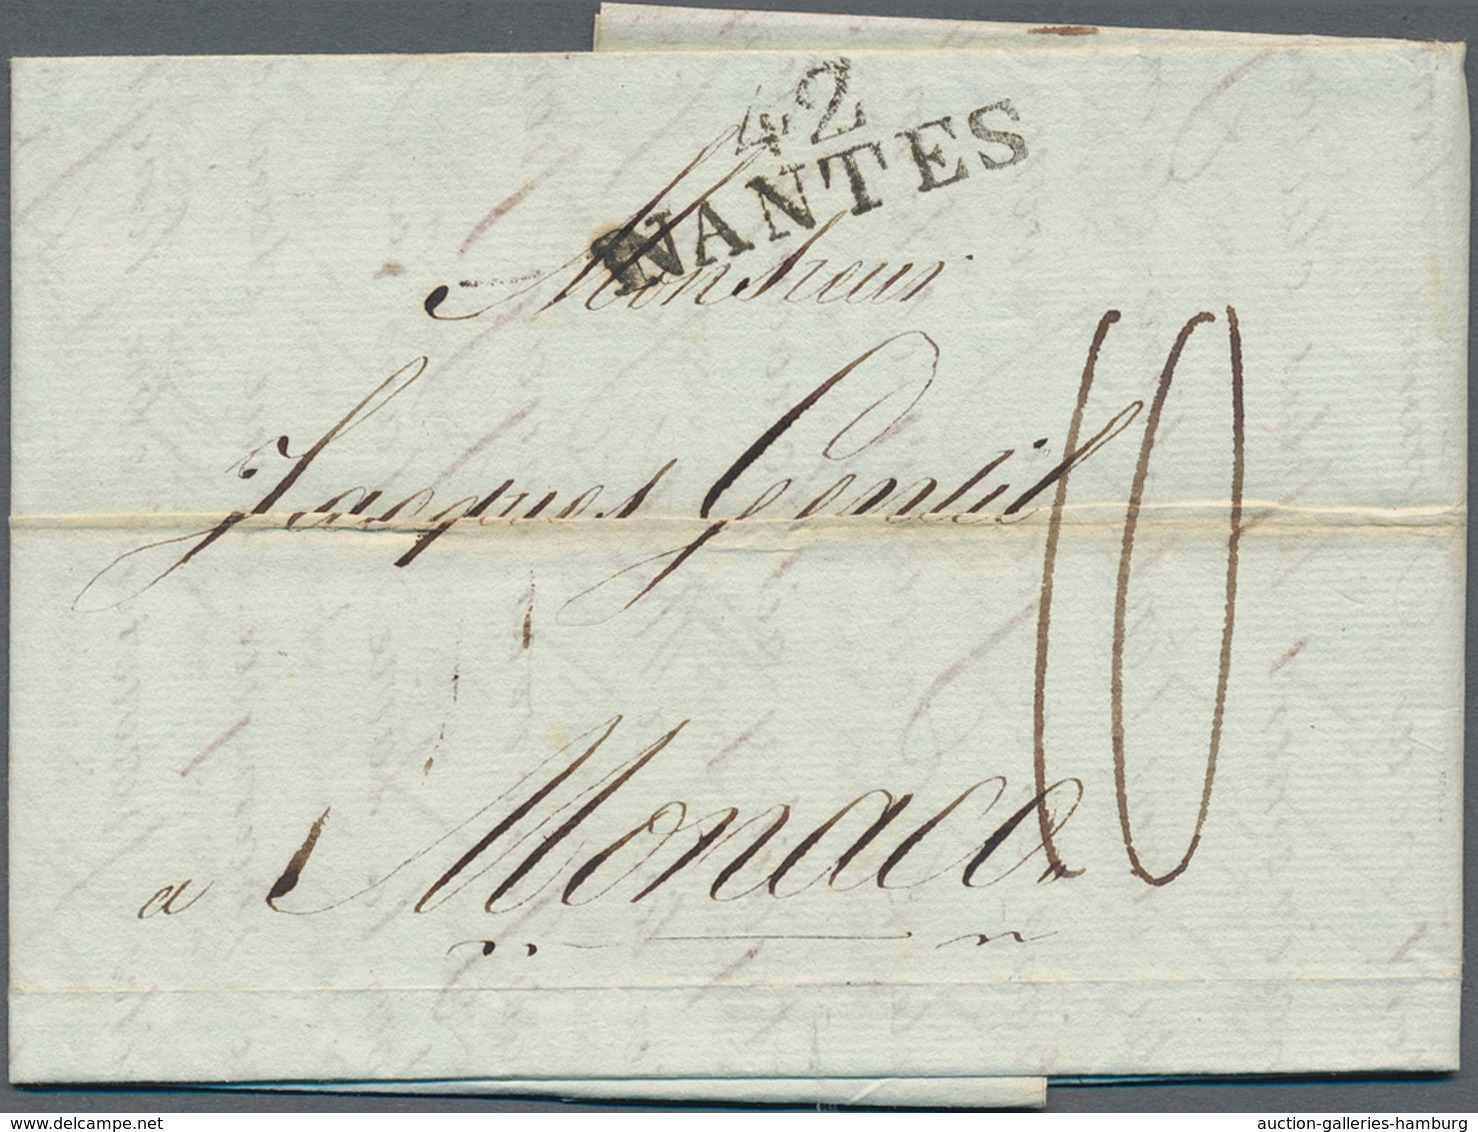 42
NANTES
Monsieur
Jacques Gentil
10
a Monaco
auction-galleries-hamburg